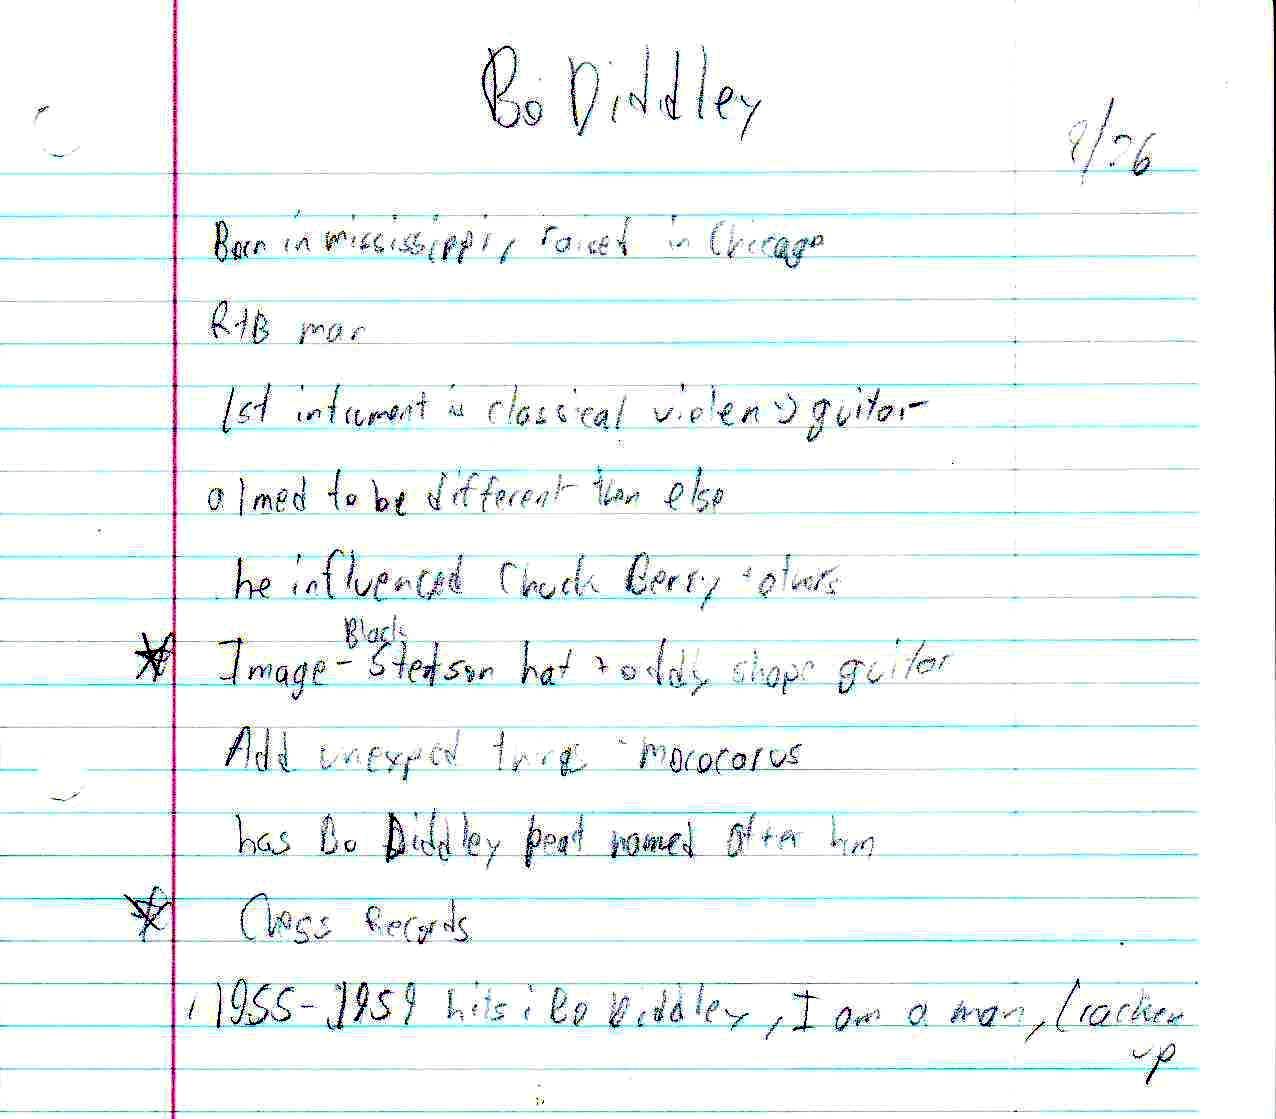 Bo Diddley
9/26
Born in mississippi, raised in Chicago
R+B man
1st intrument is classical violen => guitar
aimed to be different than else
he influenced Chuck Berry + others
Black
Image - Stedson hat + oddly shape guitar
Add unexped - mococorus
has Bo Diddley beat named after him
Chess Records
1955-1959 hits: Bo Diddley, I am a man, Cracken
up